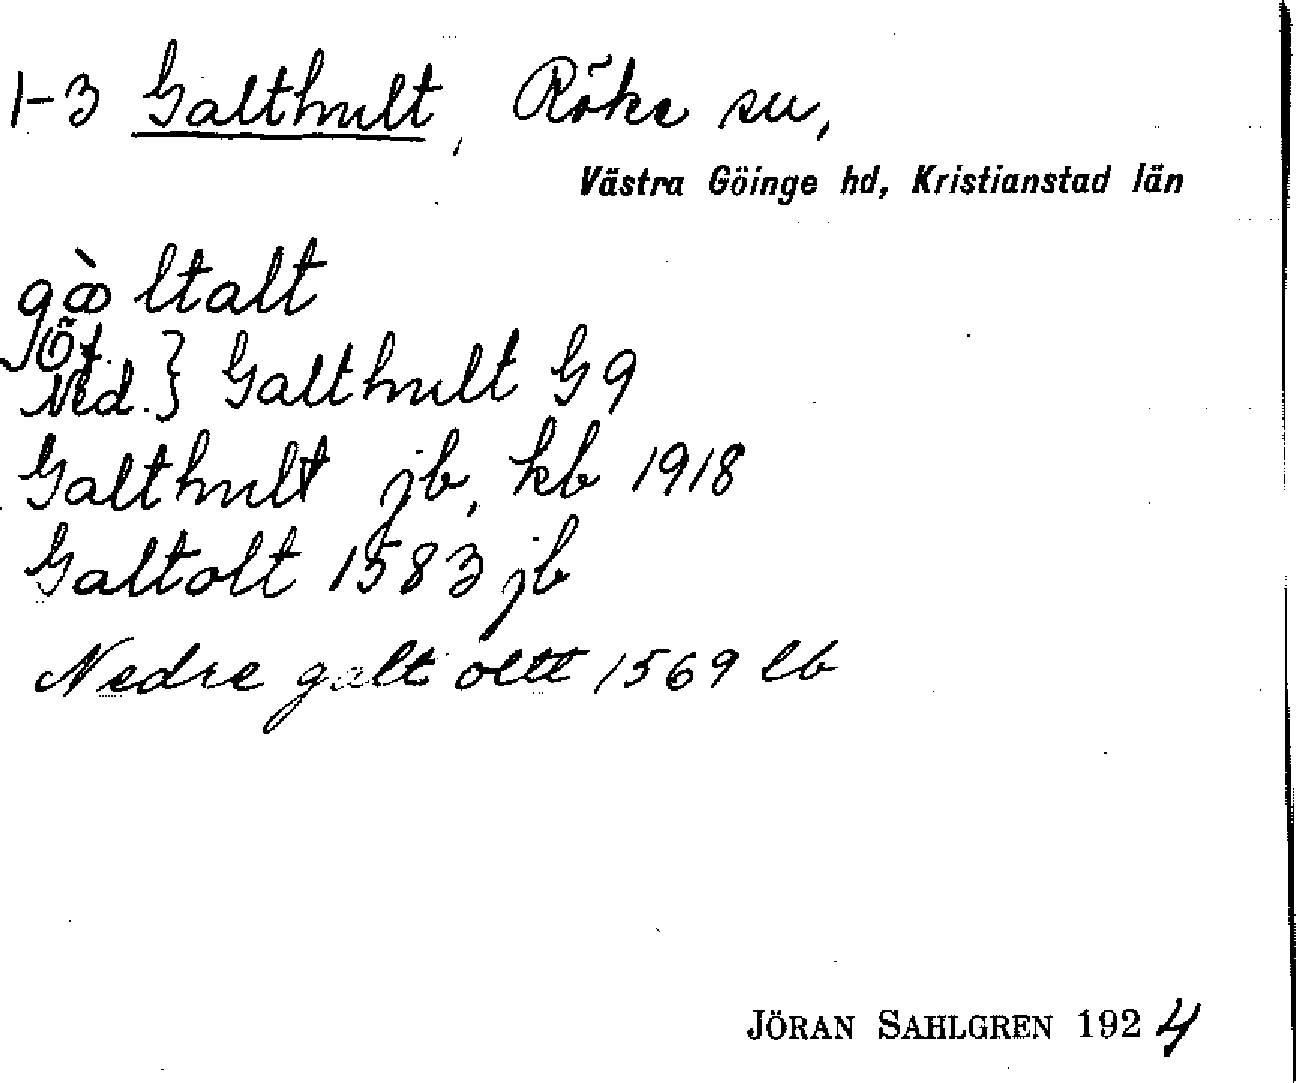 1-3 Galthult, Röke sn,
Västra Göinge hd, Kristianstad län
gàltalt
Öf.
Ned. } Galthult G9
Galthult jb, kb 1918
Galtolt 1583 jb
Nedre galt oltt 1569 lb
JÖRAN SAHLGREN 1924